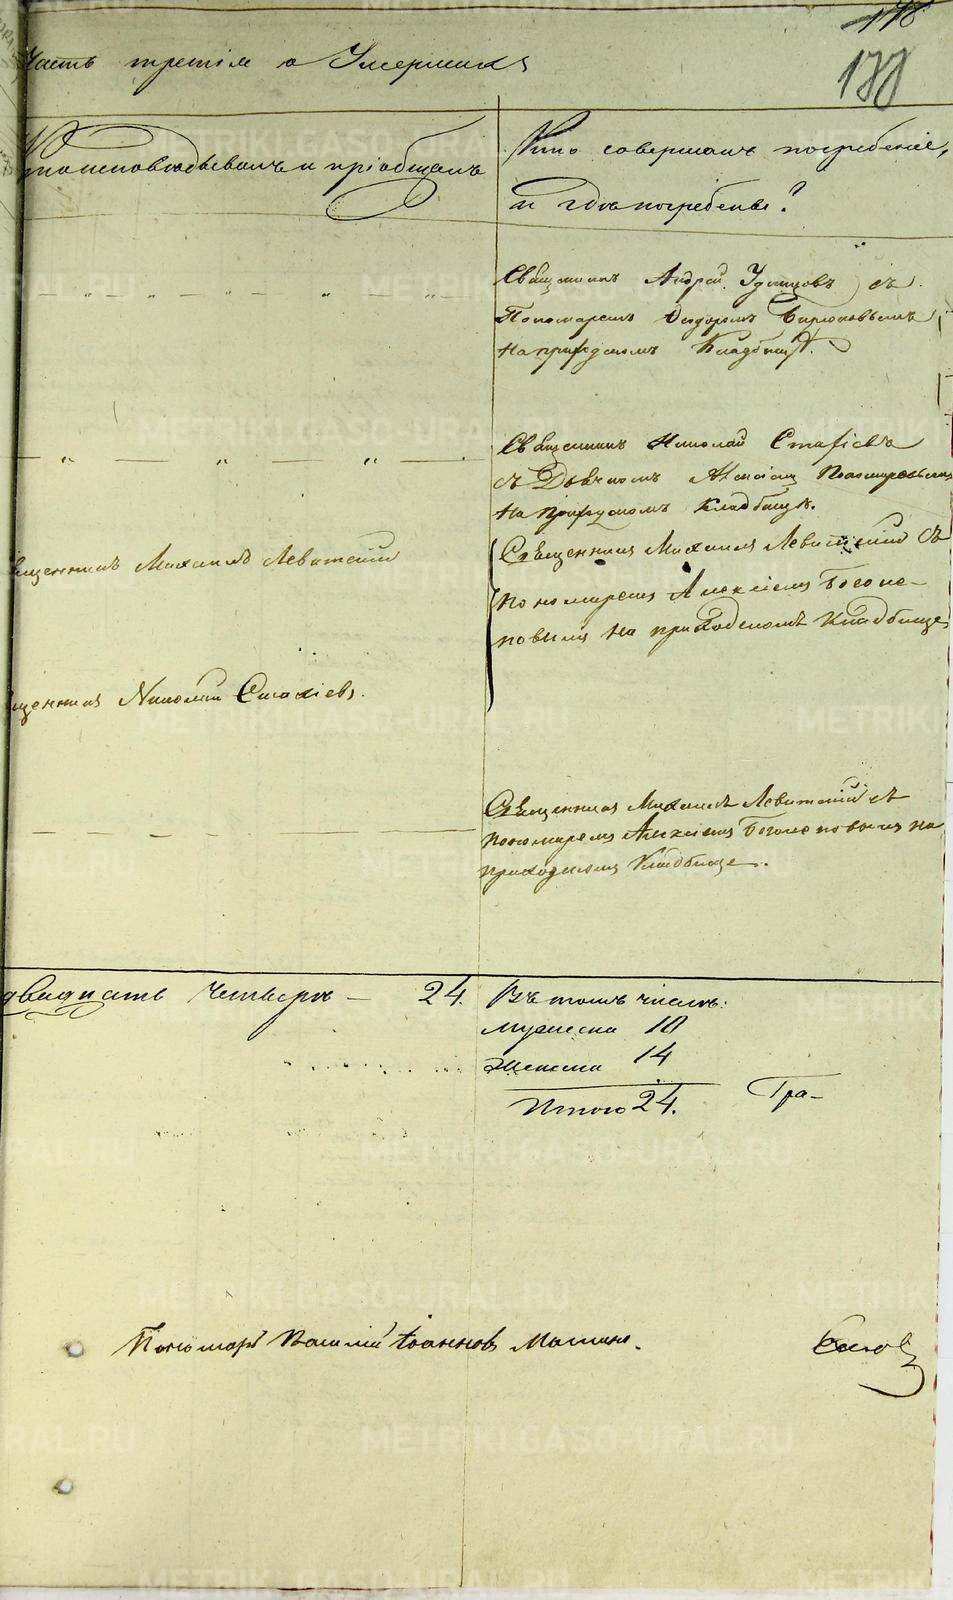 178
Часть третія о Умершихъ
Кто исповѣдывалъ и пріобщалъ
Кто совершалъ погребеніе,
и гдѣ погребены?
Священникъ Андрей Удинцовъ съ
Пономаремъ Ѳедоромъ Бирюковымъ
на приходскомъ Кладбищѣ.
Священникъ Николай Стахіевъ
съ Дьячкомъ Алексіем Пономаревымъ
на приходскомъ Кладбищѣ.
Священникъ Михаилъ Левитскій
Священникъ Михаилъ Левитскій съ
пономаремъ Алексіемъ Боголе-
повымъ на приходскомъ Кладбище
щенникъ Николай Стахіевъ.
Священникъ Михаилъ Левитскій съ
пономаремъ Алексіемъ Боголеповымъ на
приходскомъ Кладбище.
двадцать четыре — 24.
Въ томъ числѣ:
Мужеска 10
Женска 14
Итого 24.
Гра-
Пономарь Василій Іоанновъ
METRIKI.GASO-URAL.RU